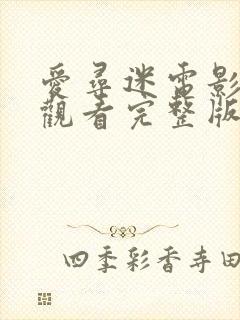 愛尋迷電影
觀看完整版
四季彩香寺田